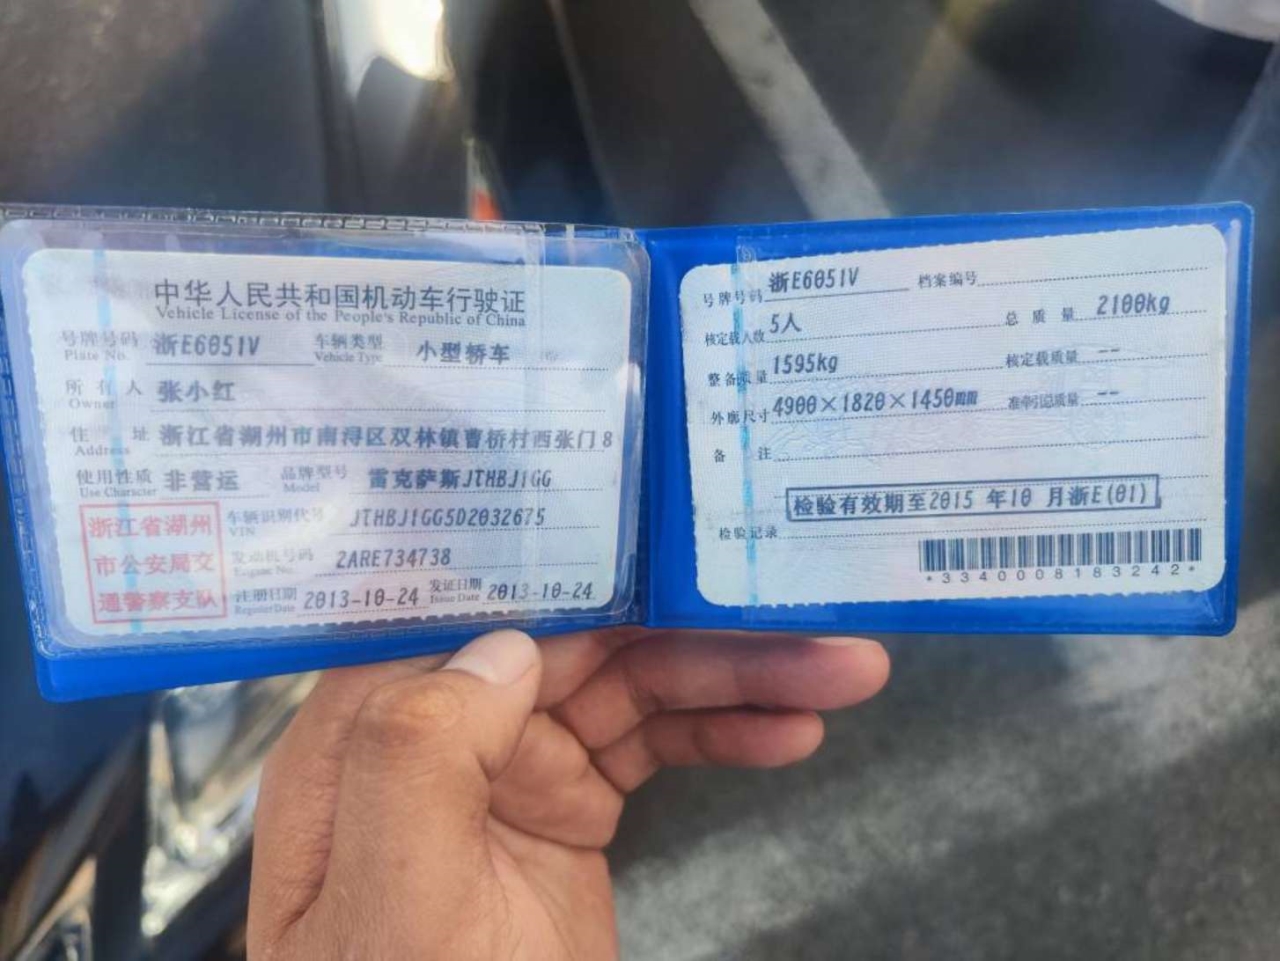 中华人民共和国机动车行驶证
Vehicle License of the People's Republic of China
号牌号码 浙E6051V 车辆类型 小型轿车
Plate No. Vehicle Type
所有人 张小红
Owner
住址 浙江省湖州市南浔区双林镇曹桥村西张门8
Address
使用性质 非营运 品牌型号 雷克萨斯JTHBJ1GG
Use Character Model
浙江省湖州
市公安局交
通警察支队
车辆识别代号 JTHBJ1GG5D2032675
VIN
发动机号码 2ARE734738
Engine No.
注册日期 2013-10-24 发证日期 2013-10-24
Register Date Issue Date
号牌号码 浙E6051V 档案编号
核定载人数 5人 总质量 2100kg
整备质量 1595kg 核定载质量 --
外廓尺寸 4900×1820×1450mm 准牵引总质量 --
备注
检验有效期至2015 年10 月浙E(01)
检验记录
*3340008183242*